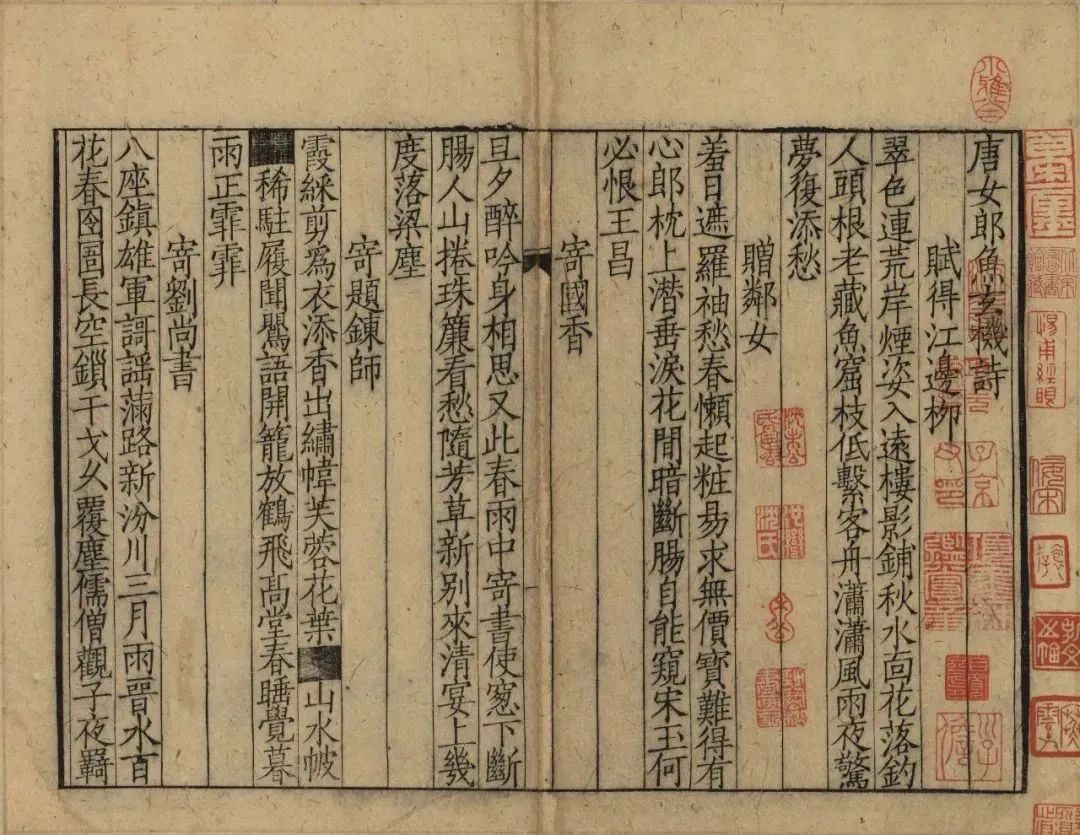 唐女郎魚玄機詩
賦得江邊柳
翠色連荒岸煙姿入遠樓影鋪秋水面花落釣
人頭根老藏魚窟枝低繫客舟瀟瀟風雨夜驚
夢復添愁
贈鄰女
羞日遮羅袖愁春懶起粧易求無價寶難得有
心郎枕上潛垂淚花間暗斷腸自能窺宋玉何
必恨王昌
寄國香
旦夕醉吟身相思又此春雨中寄書使窻下斷
腸人山捲珠簾看愁隨芳草新別來清宴上幾
度落梁塵
寄題鍊師
霞綵剪爲衣添香出繡幃芙蓉花葉山水帔
稀駐履聞鶯語開籠放鶴飛高堂春睡覺暮
雨正霏霏
寄劉尚書
八座鎮雄軍謌謡滿路新汾川三月雨晉水百
花春囹圄長空鎖干戈久覆塵儒僧觀子夜羇